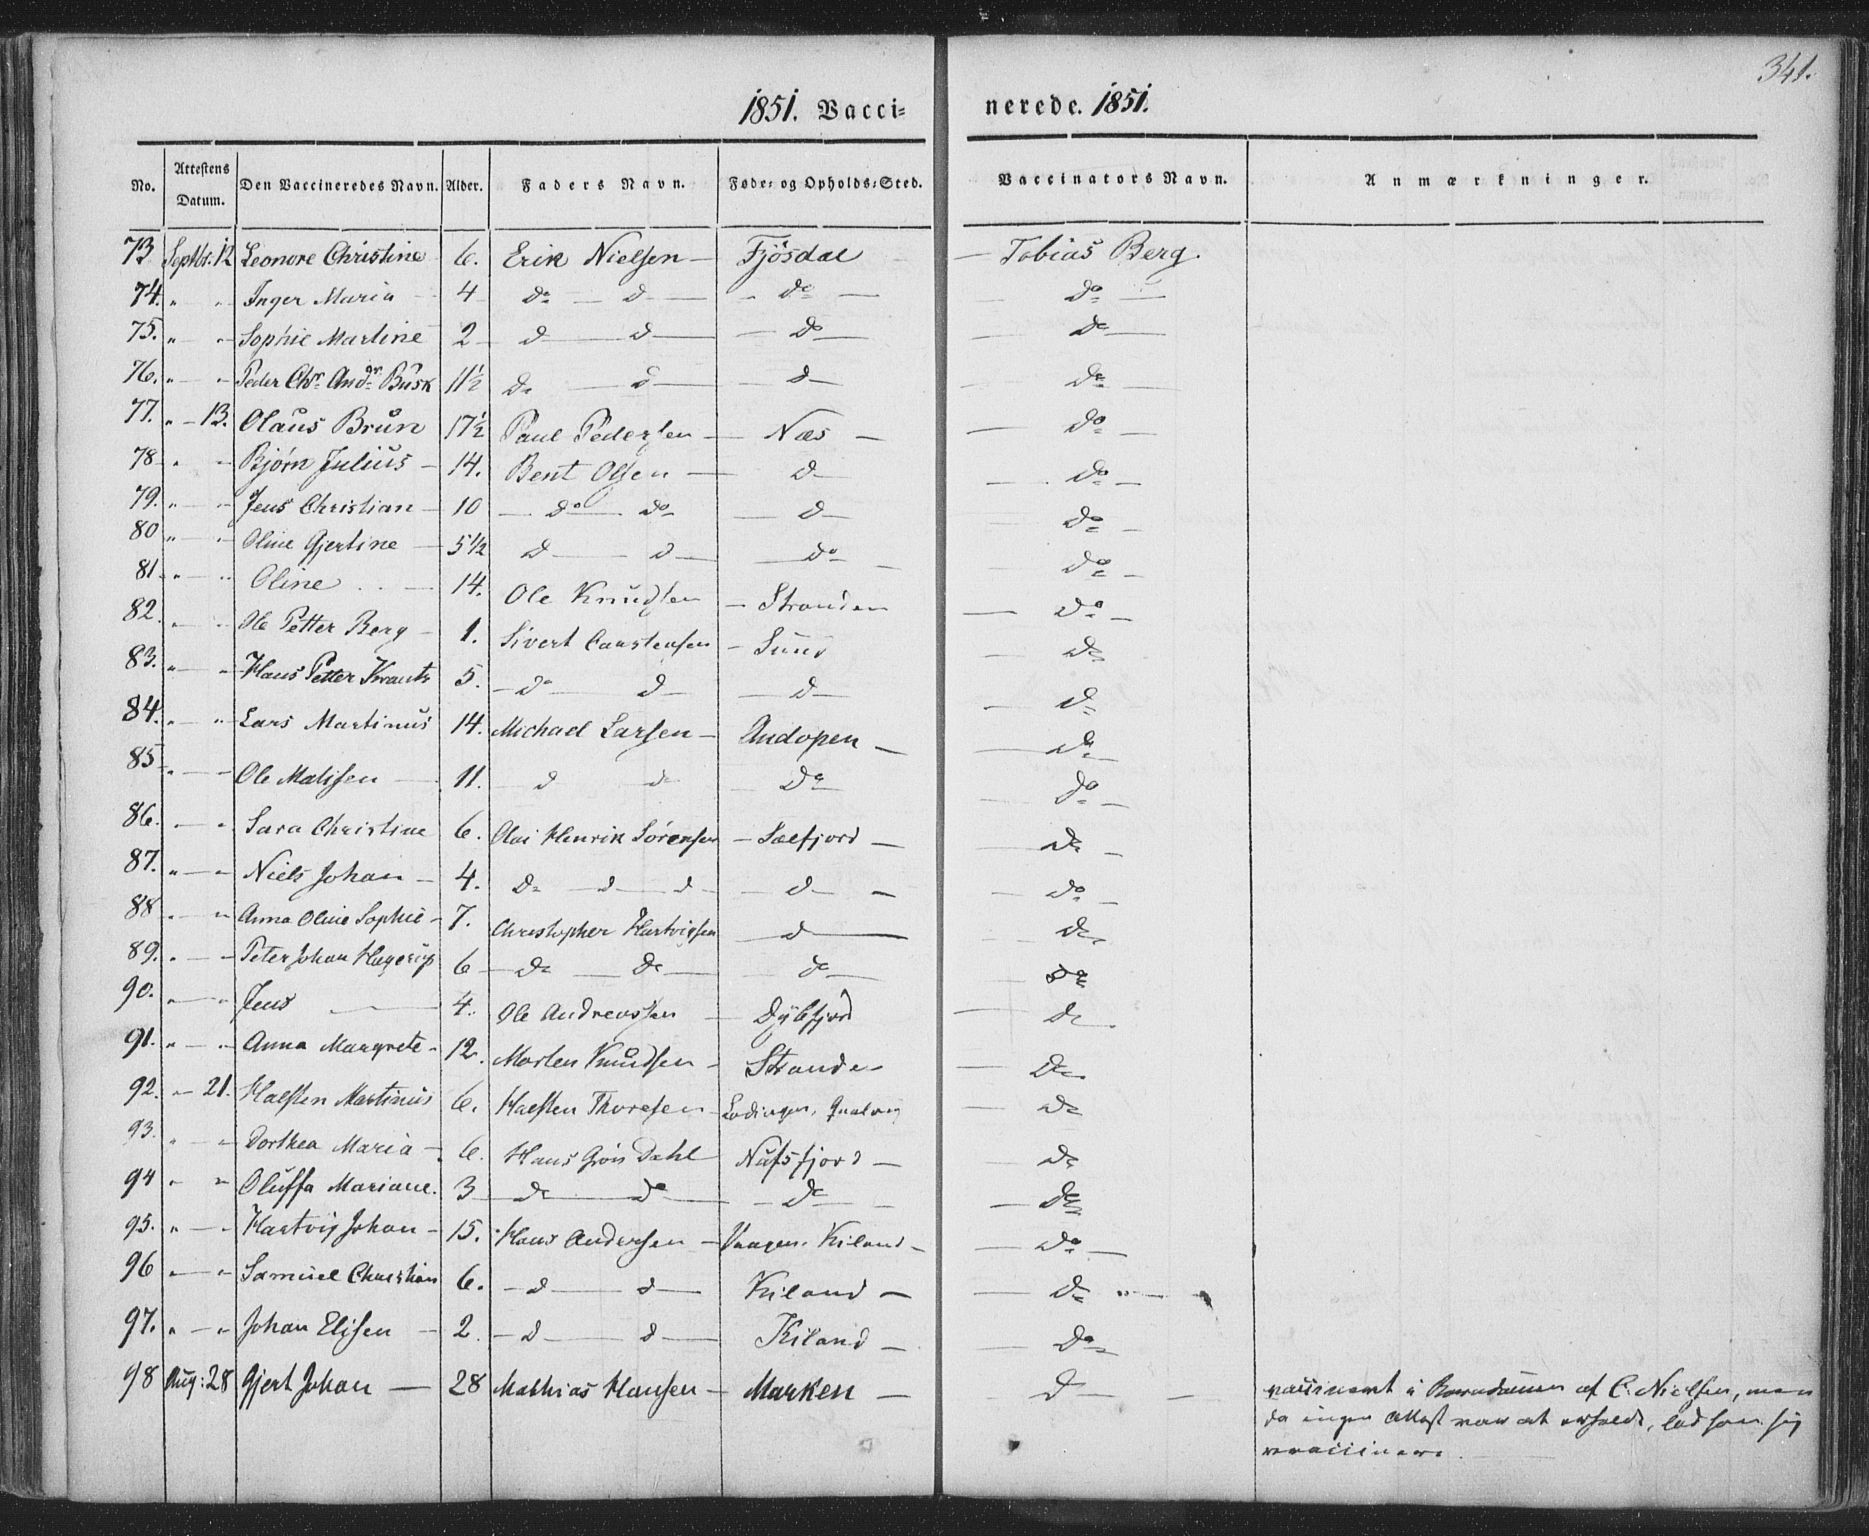 341.
1851. Vacci= nerede. 1851.
No. Attestens Datum. Den Vaccineredes Navn. Alder. Faders Navn. Føde= og Opholds=Sted. Vaccinators Navn. Anmærkninger.
73 Septbr: 12 Leonore Christine 6. Erik Nielsen — Fjøsdal — Tobias Berg.
74. " " Inger Maria — 4 do — d — do — do —
75. " " Sophie Martine 2 — d — d — do — do —
76. " " Peder Chr. Andr. Busk 11½ do — d — d — do —
77. " — 13. Olaus Brun 17½ Paul Pedersen — Næs — do —
78 " " Bjørn Julius — 14. Bent Olsen — d — do —
79. " " Jens Christian — 10 — do — do — d — do —
80 " " Oline Gjertine — 5½ d — d — do — do —
81 " " Oline — 14. Ole Knudsen — Stranden — do —
82. " " Ole Petter Berg — 1. Sivert Carstensen — Sund — do
83. " " Hans Petter Krantz 5. — do — d — d — do
84. " " Lars Martinus 14. Michael Larsen — Andopen — do —
85 " " Ole Matisen — 11. d — do — do — do —
86. " " Sara Christine 6. Olai Henrik Sørensen — Selfjord — do —
87. " " Niels Johan — 4. do — d — d — d — do —
88 " " Anna Oline Sophie — 7. Christopher Hartvigsen — d — do
89. " " Peter Johan Hagerup 6 — do — do — do — do
90. " " Jens — 4. Ole Andreassen — Dybfjord — do
91. " " Anna Margrete — 12. Morten Knudsen — Strande — do
92. " — 21. Halsten Martinus 6. Halsten Thoresen — Lodingen, — do
93. " " Dorthea Maria — 6. Hans Grøn Dahl Nufsfjord — do
94 " " Oluffa Mariane. 3 — do — do — do — do
95. " " Hartvig Johan — 15. Hans Andersen — Vaagen. Kiland — do —
96 " " Samuel Christian 6. — d — d — Kiland — do
97. " " Johan Elisen — 2. — d — d — Kiland — do
98 Aug: 28 Gjert Johan — 28 Mathias Hansen — Marken — d — vaccineret i Barndommen af C. Nielsen, men
da ingen Attest var at erholde, lod han sig
vaccinere.